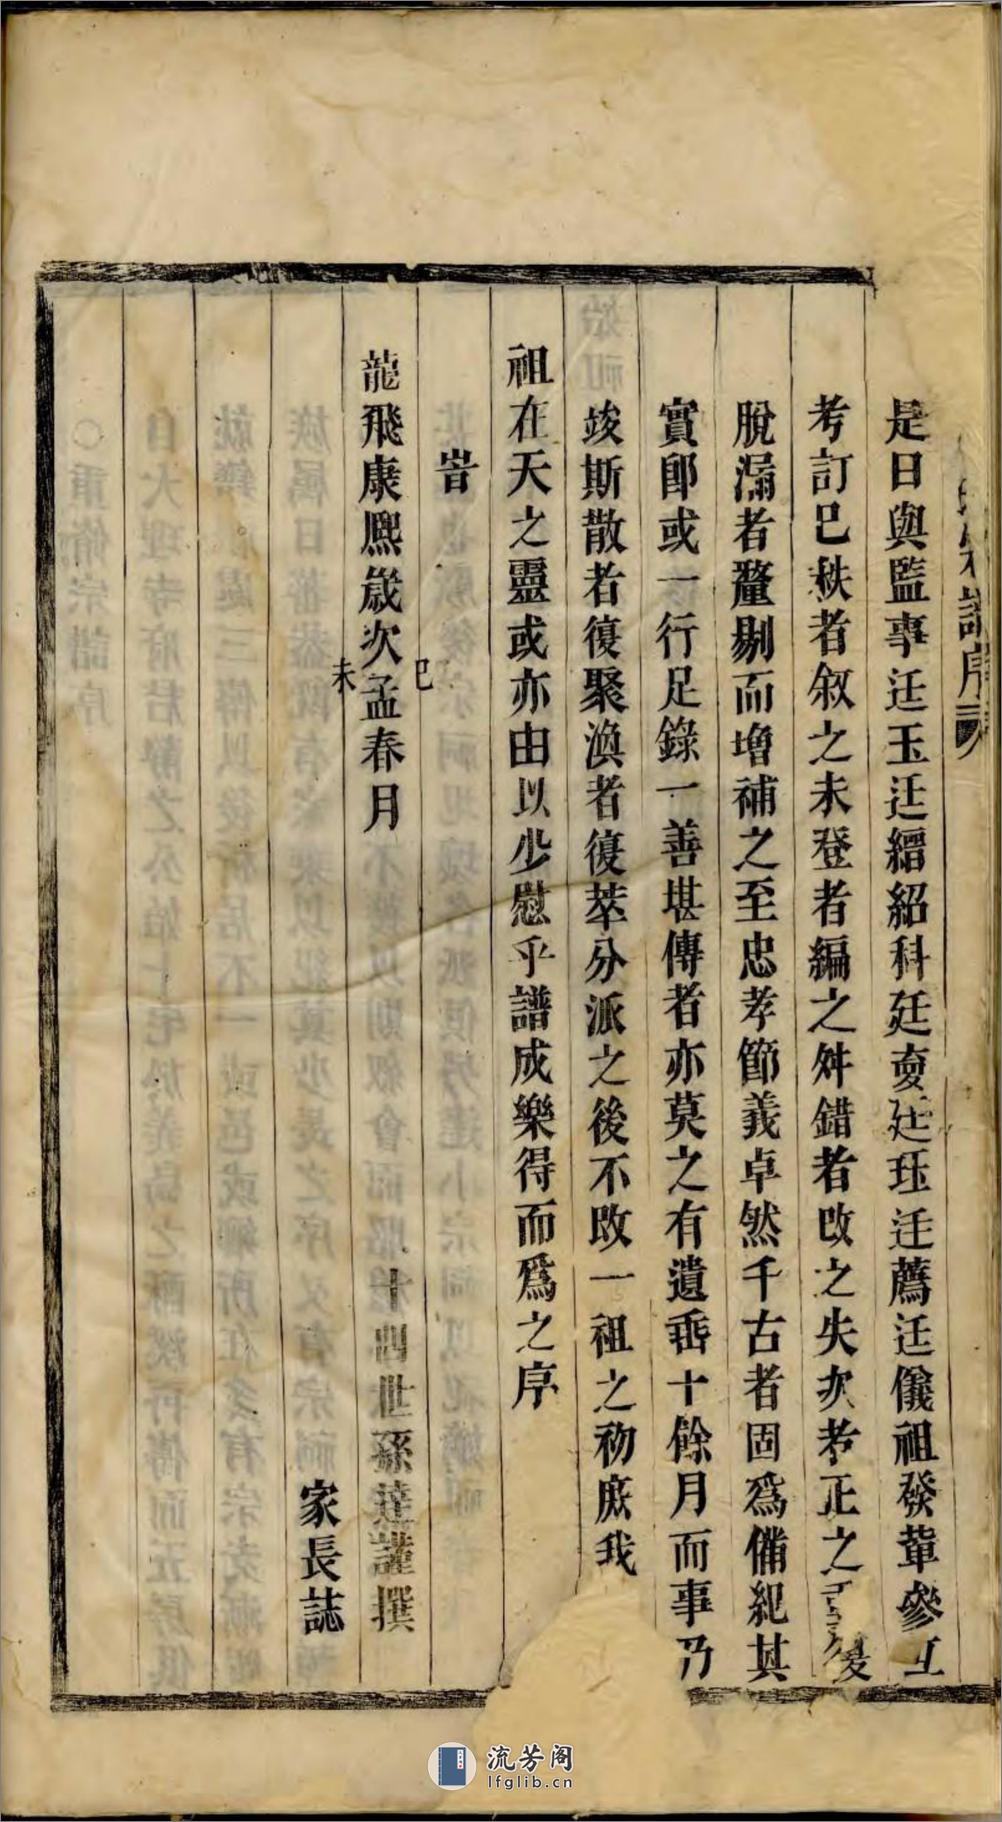 宗譜序
是日與監事廷玉廷縉紹科廷夌廷珏廷薦廷儀祖發軰參互
考訂已秩者叙之未登者編之舛錯者改之失次者正之重複
脫漏者釐剔而增補之至忠孝節義卓然千古者固爲備紀其
實卽或一行足錄一善堪傳者亦莫之有遺乖十餘月而事乃
竣斯散者復聚渙者復萃分派之後不改一祖之初庶我
祖在天之靈或亦由以少慰乎譜成樂得而爲之序
旹
龍飛康熈歲次己未孟春月 十四世孫達謹撰
家長誌
流芳阁
lfglib.cn